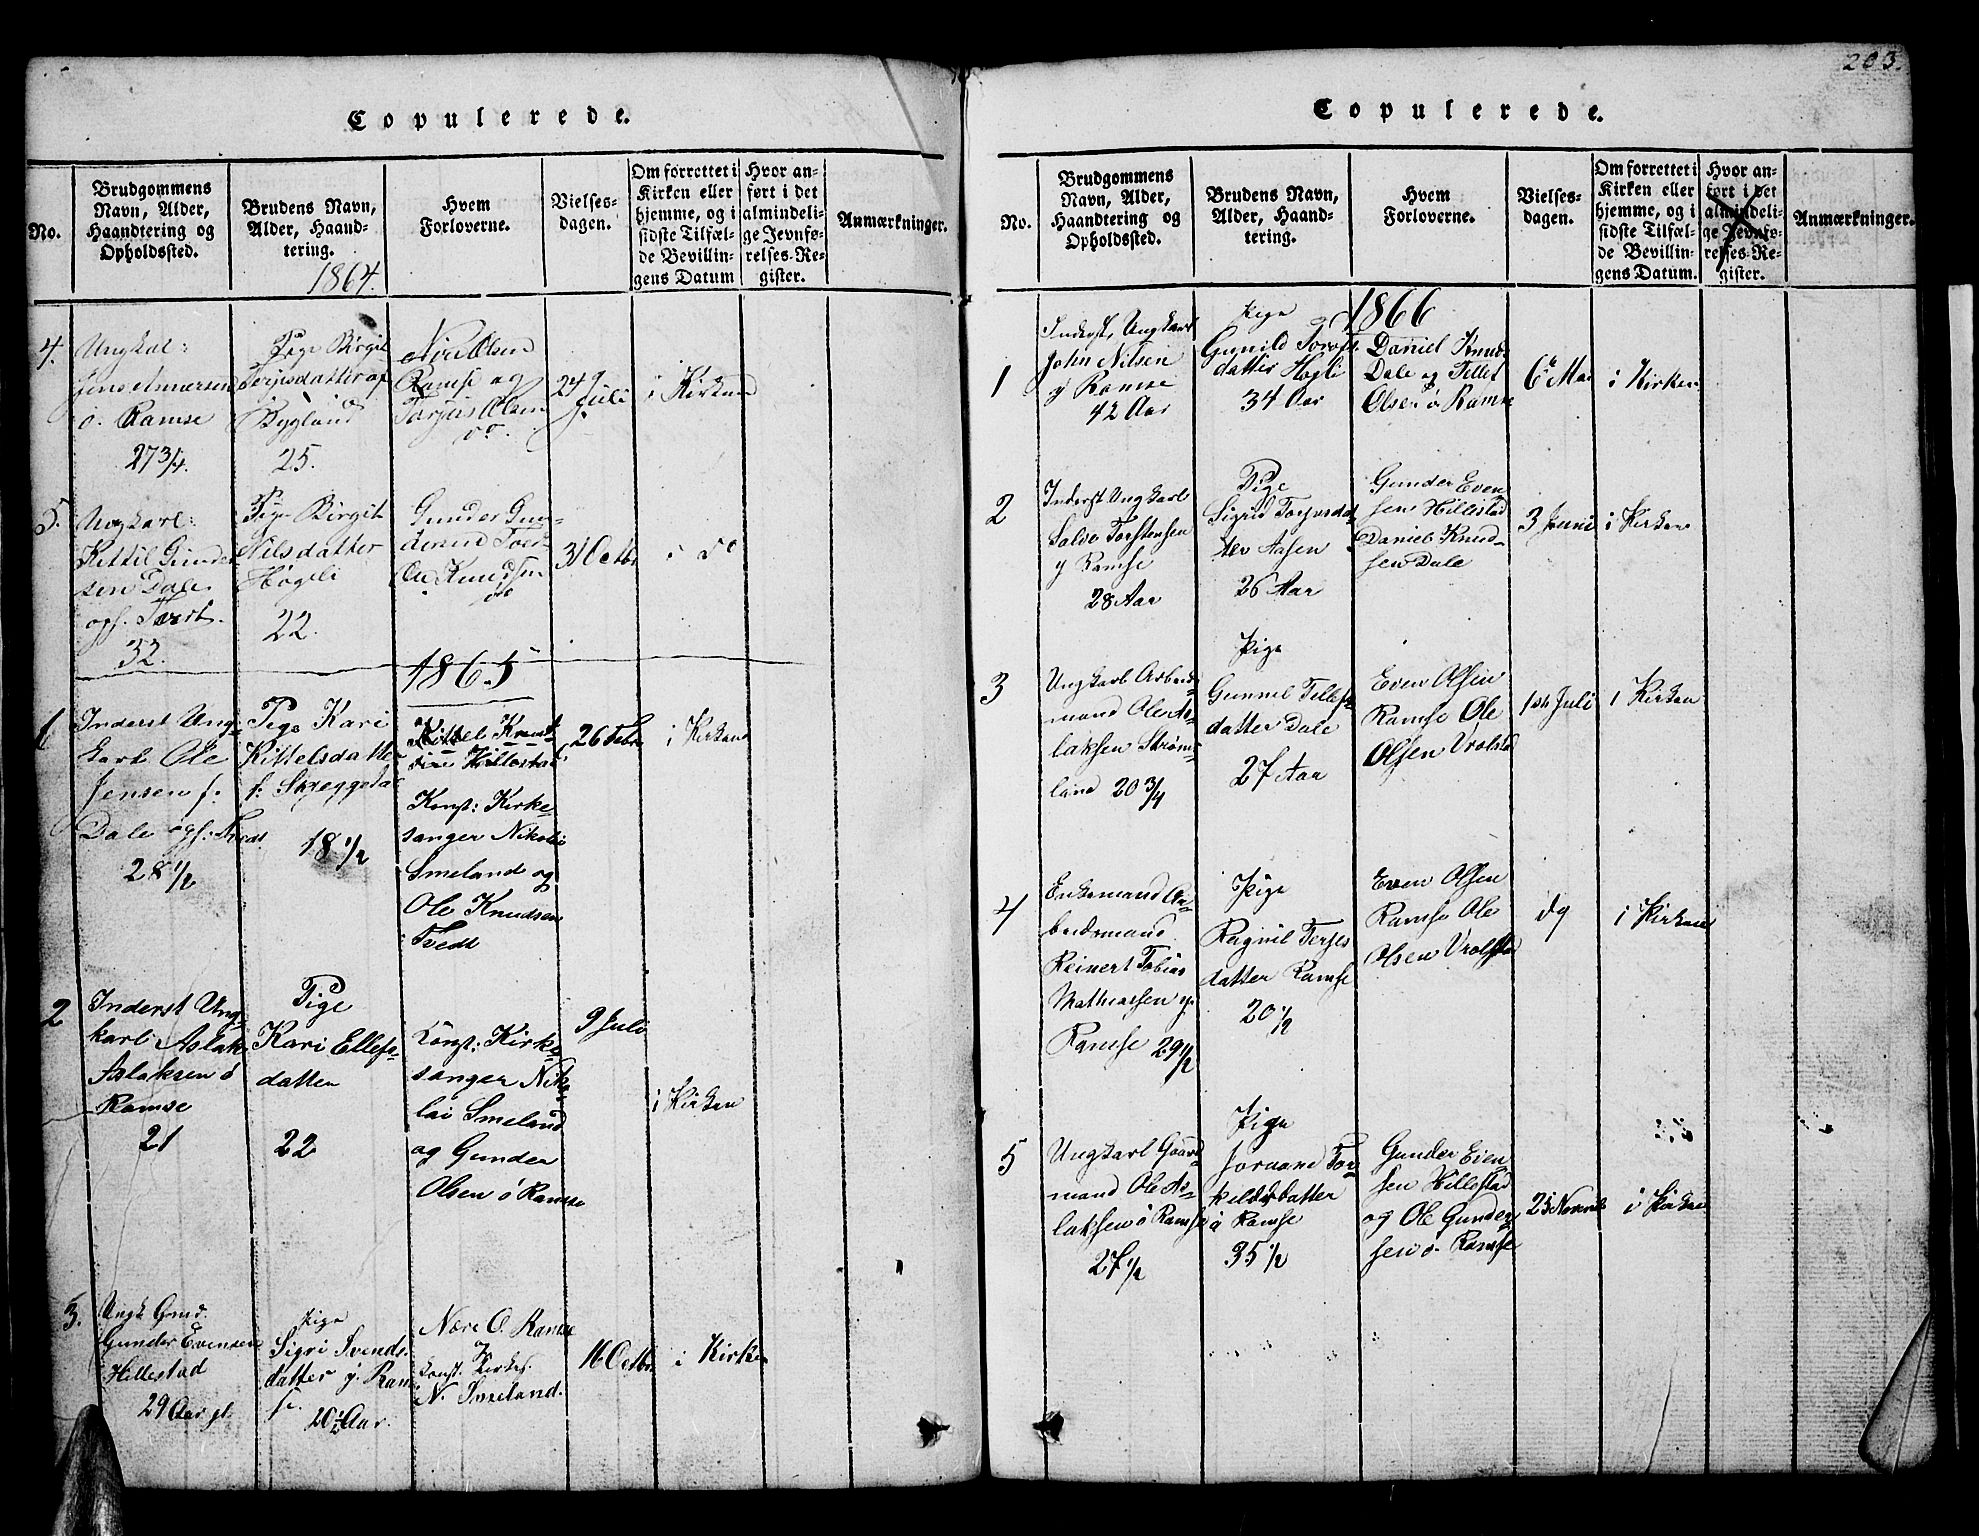 203.
Copulerede.
No.
Brudgommens
Navn, Alder,
Haandtering og
Opholdssted.
Brudens Navn,
Alder, Haand-
tering.
1864.
Hvem
Forloverne.
Vielses-
dagen.
Om forrettet i
Kirken eller
hjemme, og i
sidste Tilfæl-
de Bevillin-
gens Datum
Hvor an-
ført i det
almindeli-
ge Jevnfø-
relses-Re-
gister.
Anmærkninger.
4.
Ungkal:
Jens Annersen
o. Ramse
27 3/4.
Pige Birgit
Terjisdatter af
Bygland
25.
Olsen
Ramse og
Torjus Olsen
do.
24
Juli
i Kirken
5.
Ungkarl:
Kittil Gunder
sen Dale
opf. Tvedt.
32.
Pige Birgit
Nilsdatter
Høgeli
22.
Gunder Gun-
Ole Knudsen
do
31 Octbr
i do
1865
1
Inderst Ung-
karl Ole
Jensen f:
Dale opf: Tvedt
28 1/2
Pige Kari
Kittelsdatter
f: Skreggedal
18 1/2
Kittel Knut-
sen Hillestad
Konst: Kirke-
sanger Nikolai
Smeland og
Ole Knudsen
Tvedt
26 Febr
i Kirken
2
Inderst Ung-
karl Aslak
Aslaksen ø
Ramse
21
Pige
Kari Ellefs-
datter
22
Konst: Kirke-
sanger Niko-
lai Smeland
og Gunder
Olsen ø Ramse
9 Juli
i Kirken
3.
Ungk Gmd.
Gunder Evensen
Hillestad
29 Aar gl.
Pige
Sigri Svends-
datter y. Ram-
se.
20 1/2 Aar.
Nere O. Ramse
Konst. Kirkes.
N. Smeland.
16 Octbr
i Kirken
Copulerede.
No.
Brudgommens
Navn, Alder,
Haandtering og
Opholdssted.
Brudens Navn,
Alder, Haand-
tering.
Hvem
Forloverne.
Vielses-
dagen.
Om forrettet i
Kirken eller
hjemme, og i
sidste Tilfæl-
de Bevillin-
gens Datum.
Hvor an-
ført i det
almindeli-
ge Jevnfø-
relses-Re-
gister.
Anmærkninger.
1866
1
Inderst, Ungkarl
John Nilsen
y Ramse
42 Aar
Pige
Gunild Torof-
datter Høgli
34 Aar
Daniel Knuds
Dale og Tellef
Olsen ø Ramse
6te Mai
i Kirken
2
Inderst Ungkarl
Salve Torstensen
y Ramse
28 Aar
Pige
Sigrid Torjusdat-
ter Aasen
26 Aar
Gunder Even
sen Hillestad
Daniel Knud-
sen Dale
3 Juni
i Kirken
3
Ungkarl Arbeids-
mand Ole As-
laksen Strøms-
land 20 3/4
Pige
Gunnil Tellefs-
datter Dale
27 Aar
Even Olsen
Ramse Ole
Olsen Vrolstad
1ste Juli
i Kirken
4
Enkemand Ar-
beidsmand
Reinert Tobias
Mathiassen y.
Ramse 29 1/2
Pige
Ragnil Terjes
datter Ramse
20 1/2
Even Olsen
Ramse Ole
Olsen Vrolstad
i Kirken
5
Ungkarl Gaard-
mand Ole As-
laksen ø Ramse
27 1/2
Pige
Joraand Tor-
kelsdatter
ø Ramse
35 1/2
Gunder Even
sen Hillestad
og Ole Gunder
sen ø. Ramse
i Kirken